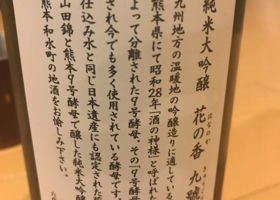 純米大吟醸 花の香 九號
はなのか
九州地方の温暖地の吟醸造りに適している
熊本県にて昭和28年「酒の神様」と呼ばれ
よって分離された9号酵母。その「9号酵母
され今でも多く使用されている酵母です。
仕込み水と同じ日本遺産にも認定された
山田錦と熊本9号酵母で醸した純米大吟醸
熊本 和水町の地酒をお愉しみ下さい。